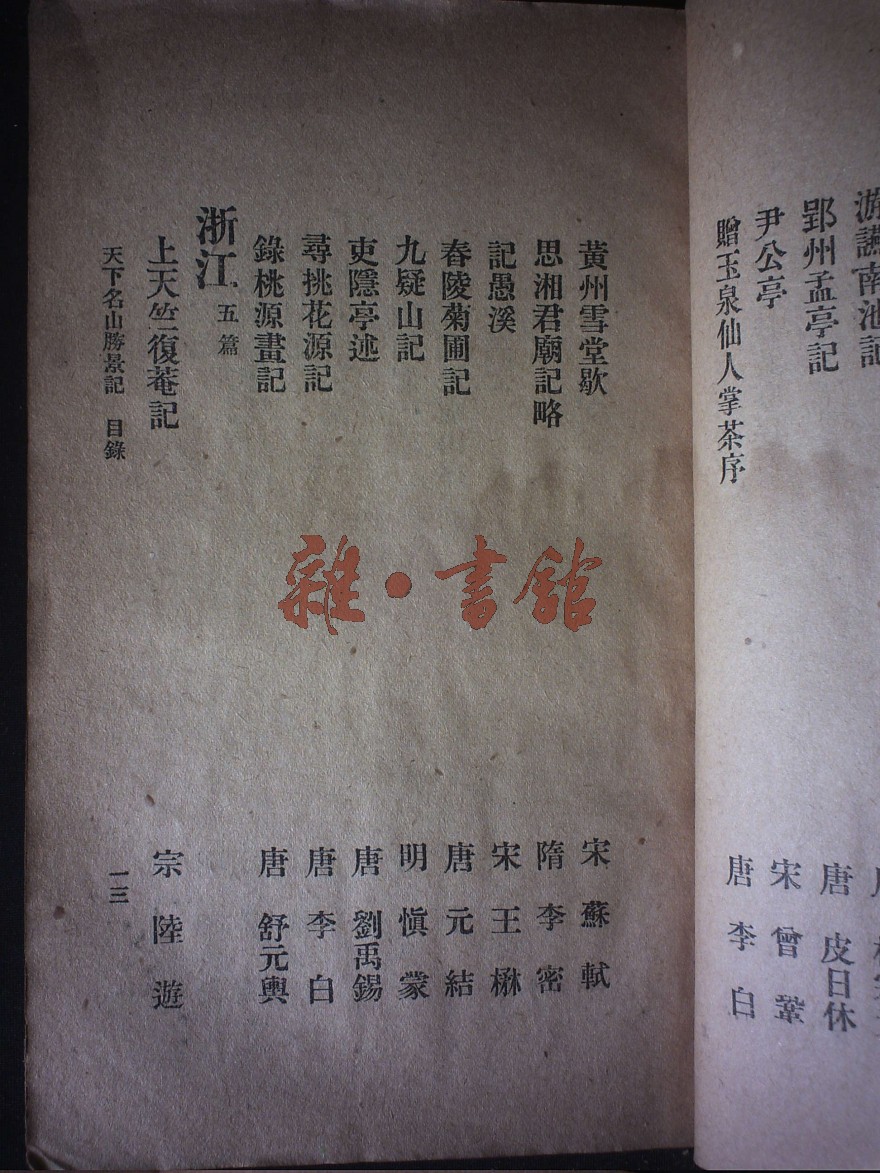 游讌南池記
郢州孟亭記 唐 皮日休
尹公亭 宋 曾鞏
贈玉泉仙人掌茶序 唐 李白
黃州雪堂歇 宋 蘇軾
思湘君廟記略 隋 李密
記愚溪 宋 王楙
春陵菊圃記 唐 元結
九疑山記 明 愼蒙
吏隱亭述 唐 劉禹錫
尋挑花源記 唐 李白
錄桃源畫記 唐 舒元輿
浙江 五篇
上天竺復菴記 宗 陸遊
天下名山勝景記 目錄 一三
雜·書館